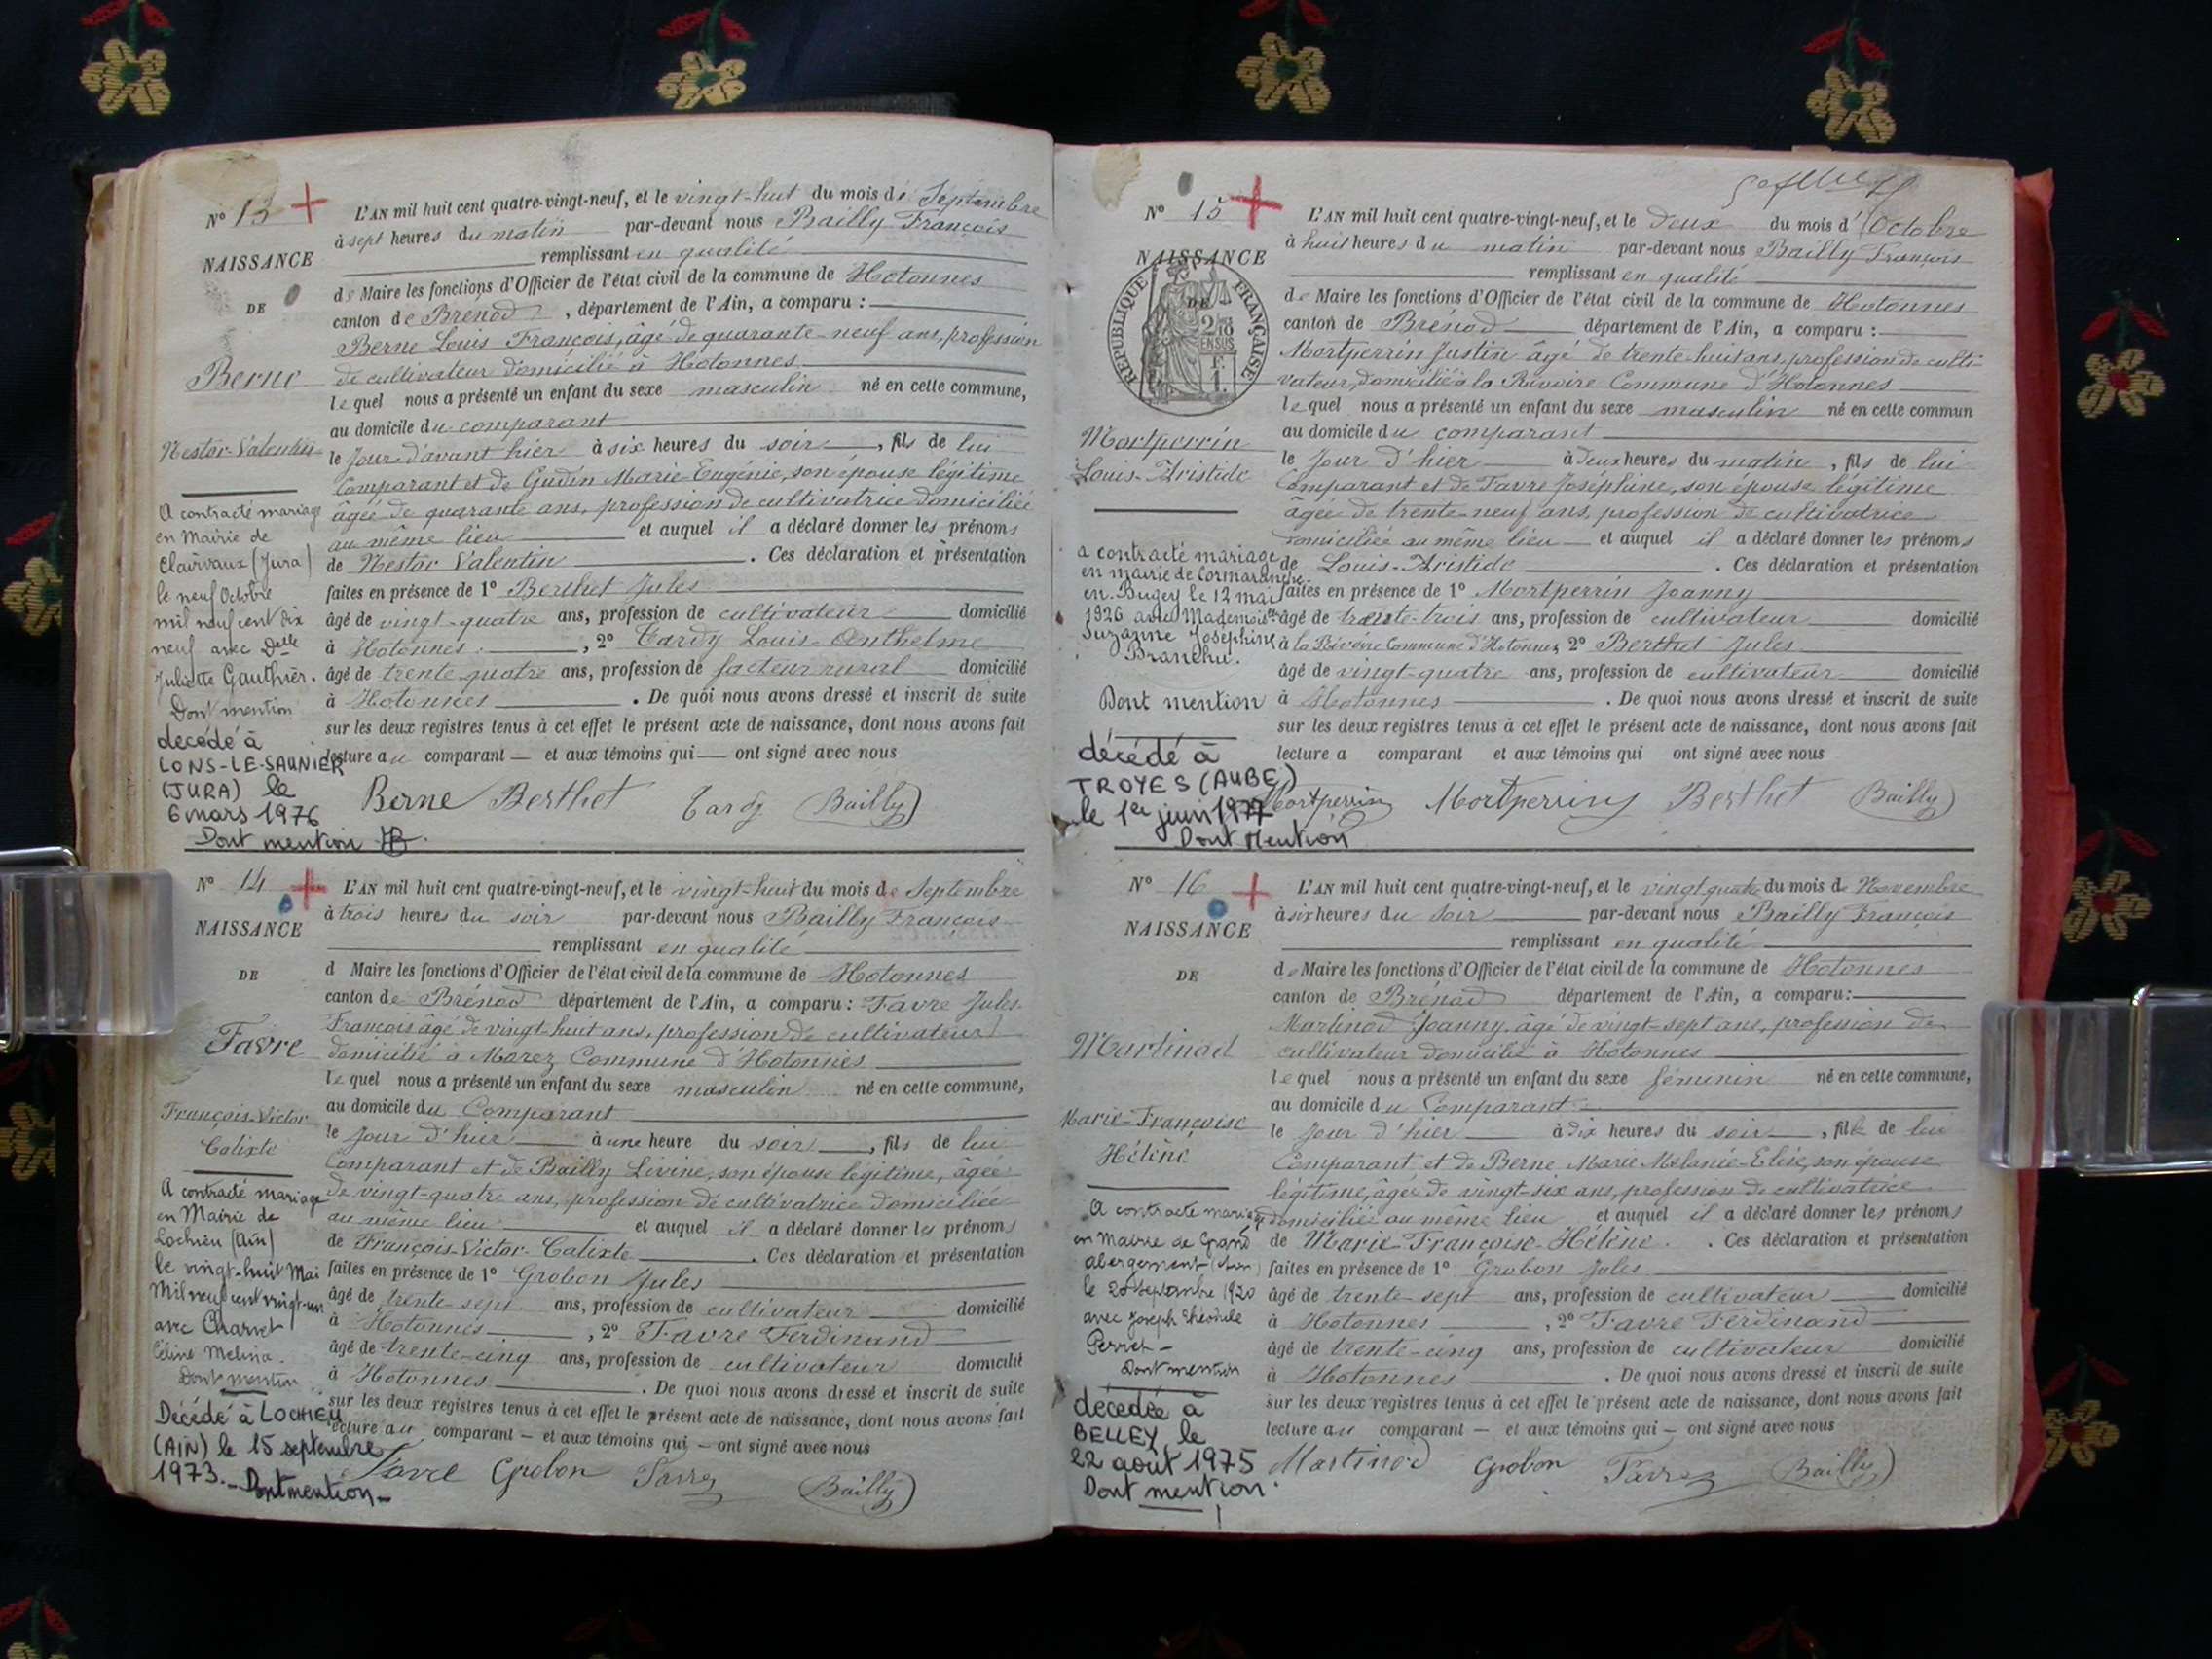 N° 13
NAISSANCE
DE
Berne
Nestor-Valentin
A contracté mariage
en Mairie de
Clairvaux (Jura)
le neuf Octobre
mil neuf cent dix
neuf avec Delle
Juliette Gauthier.
Dont mention
décédé à
LONS-LE-SAUNIER
(JURA) le
6 mars 1976
Dont mention
L'AN mil huit cent quatre-vingt-neuf, et le vingt-huit du mois de Septembre
à sept heures du matin par-devant nous Bailly François
remplissant en qualité
de Maire les fonctions d'Officier de l'état civil de la commune de Hotonnes
canton de Brénod, département de l'Ain, a comparu :
Berne Louis François, âgé de quarante-neuf ans, profession
de cultivateur domicilié à Hotonnes
lequel nous a présenté un enfant du sexe masculin né en cette commune,
au domicile du comparant
le jour d'avant hier à six heures du soir, fils de lui
Comparant et de Gudin Marie-Eugénie, son épouse légitime
âgée de quarante ans, profession de cultivatrice domiciliée
au même lieu et auquel il a déclaré donner les prénoms
de Nestor Valentin. Ces déclaration et présentation
faites en présence de 1° Berthet Jules
âgé de vingt-quatre ans, profession de cultivateur domicilié
à Hotonnes, 2° Tardy Louis-Anthelme
âgé de trente quatre ans, profession de facteur rural domicilié
à Hotonnes. De quoi nous avons dressé et inscrit de suite
sur les deux registres tenus à cet effet le présent acte de naissance, dont nous avons fait
lecture au comparant — et aux témoins qui — ont signé avec nous
Berne Berthet Tardy Bailly
N° 14
NAISSANCE
DE
Favre
François-Victor
Calixte
A contracté mariage
en Mairie de
Lochieu (Ain)
le vingt-huit Mai
Mil neuf cent vingt-un
avec Charvet
Céline Melina.
Dont mention
Décédé à LOCHIEU
(AIN) le 15 septembre
1973. - Dont mention -
L'AN mil huit cent quatre-vingt-neuf, et le vingt-huit du mois de Septembre
à trois heures du soir par-devant nous Bailly François
remplissant en qualité
d Maire les fonctions d'Officier de l'état civil de la commune de Hotonnes
canton de Brénod département de l'Ain, a comparu : Favre Jules
François âgé de vingt-huit ans, profession de cultivateur
domicilié à Morez Commune d'Hotonnes
lequel nous a présenté un enfant du sexe masculin né en cette commune,
au domicile du Comparant
le jour d'hier à une heure du soir, fils de lui
Comparant et de Bailly Livine, son épouse légitime, âgée
de vingt-quatre ans, profession de cultivatrice domiciliée
au même lieu et auquel il a déclaré donner les prénoms
de François-Victor-Calixte. Ces déclaration et présentation
faites en présence de 1° Grobon Jules
âgé de trente-sept ans, profession de cultivateur domicilié
à Hotonnes, 2° Favre Ferdinand
âgé de trente-cinq ans, profession de cultivateur domicilié
à Hotonnes. De quoi nous avons dressé et inscrit de suite
sur les deux registres tenus à cet effet le présent acte de naissance, dont nous avons fait
lecture au comparant — et aux témoins qui — ont signé avec nous
Favre Grobon Favre Bailly
N° 15
NAISSANCE
DE
RÉPUBLIQUE FRANÇAISE
2/10
EN SUS
Mortperrin
Louis-Aristide
a contracté mariage
en mairie de Cormaranche-
en-Bugey le 12 mai
1926 avec Mademoiselle
Suzanne Joséphine
Branche.
Dont mention
décédé à
TROYES (AUBE)
le 1er juin 1977
Dont Mention
L'AN mil huit cent quatre-vingt-neuf, et le deux du mois d'Octobre
à huit heures du matin par-devant nous Bailly François
remplissant en qualité
de Maire les fonctions d'Officier de l'état civil de la commune de Hotonnes
canton de Brénod département de l'Ain, a comparu :
Mortperrin Justin âgé de trente-huit ans, profession de culti-
vateur, domicilié à la Rivoire Commune d'Hotonnes
lequel nous a présenté un enfant du sexe masculin né en cette commun
au domicile du comparant
le jour d'hier à deux heures du matin, fils de lui
Comparant et de Favre Joséphine, son épouse légitime
âgée de trente-neuf ans, profession de cultivatrice
domiciliée au même lieu — et auquel il a déclaré donner les prénoms
de Louis-Aristide. Ces déclaration et présentation
faites en présence de 1° Mortperrin Joanny
âgé de trente-trois ans, profession de cultivateur domicilié
à la Rivoire Commune d'Hotonnes 2° Berthet Jules
âgé de vingt-quatre ans, profession de cultivateur domicilié
à Hotonnes. De quoi nous avons dressé et inscrit de suite
sur les deux registres tenus à cet effet le présent acte de naissance, dont nous avons fait
lecture a comparant et aux témoins qui ont signé avec nous
Mortperrin Mortperrin Berthet Bailly
N° 16
NAISSANCE
DE
Martinod
Marie-Françoise
Hélène
A contracté mariage
en Mairie de Grand
Abergement (Ain)
le 20 Septembre 1920
avec Joseph Théodule
Perret -
Dont mention
décédée à
BELLEY le
22 août 1975
Dont mention.
L'AN mil huit cent quatre-vingt-neuf, et le vingt quatre du mois de Novembre
à six heures du soir par-devant nous Bailly François
remplissant en qualité
de Maire les fonctions d'Officier de l'état civil de la commune de Hotonnes
canton de Brénod département de l'Ain, a comparu:
Martinod Joanny, âgé de vingt-sept ans, profession de
cultivateur domicilié à Hotonnes
lequel nous a présenté un enfant du sexe féminin né en cette commune,
au domicile du Comparant
le jour d'hier à dix heures du soir, fille de lui
Comparant et de Berne Marie Mélanie-Elise, son épouse
légitime, âgée de vingt-six ans, profession de cultivatrice
domiciliée au même lieu et auquel il a déclaré donner les prénoms
de Marie-Françoise-Hélène. Ces déclaration et présentation
faites en présence de 1° Grobon Jules
âgé de trente-sept ans, profession de cultivateur domicilié
à Hotonnes, 2° Favre Ferdinand
âgé de trente-cinq ans, profession de cultivateur domicilié
à Hotonnes. De quoi nous avons dressé et inscrit de suite
sur les deux registres tenus à cet effet le présent acte de naissance, dont nous avons fait
lecture au comparant — et aux témoins qui — ont signé avec nous
Martinod Grobon Favre Bailly